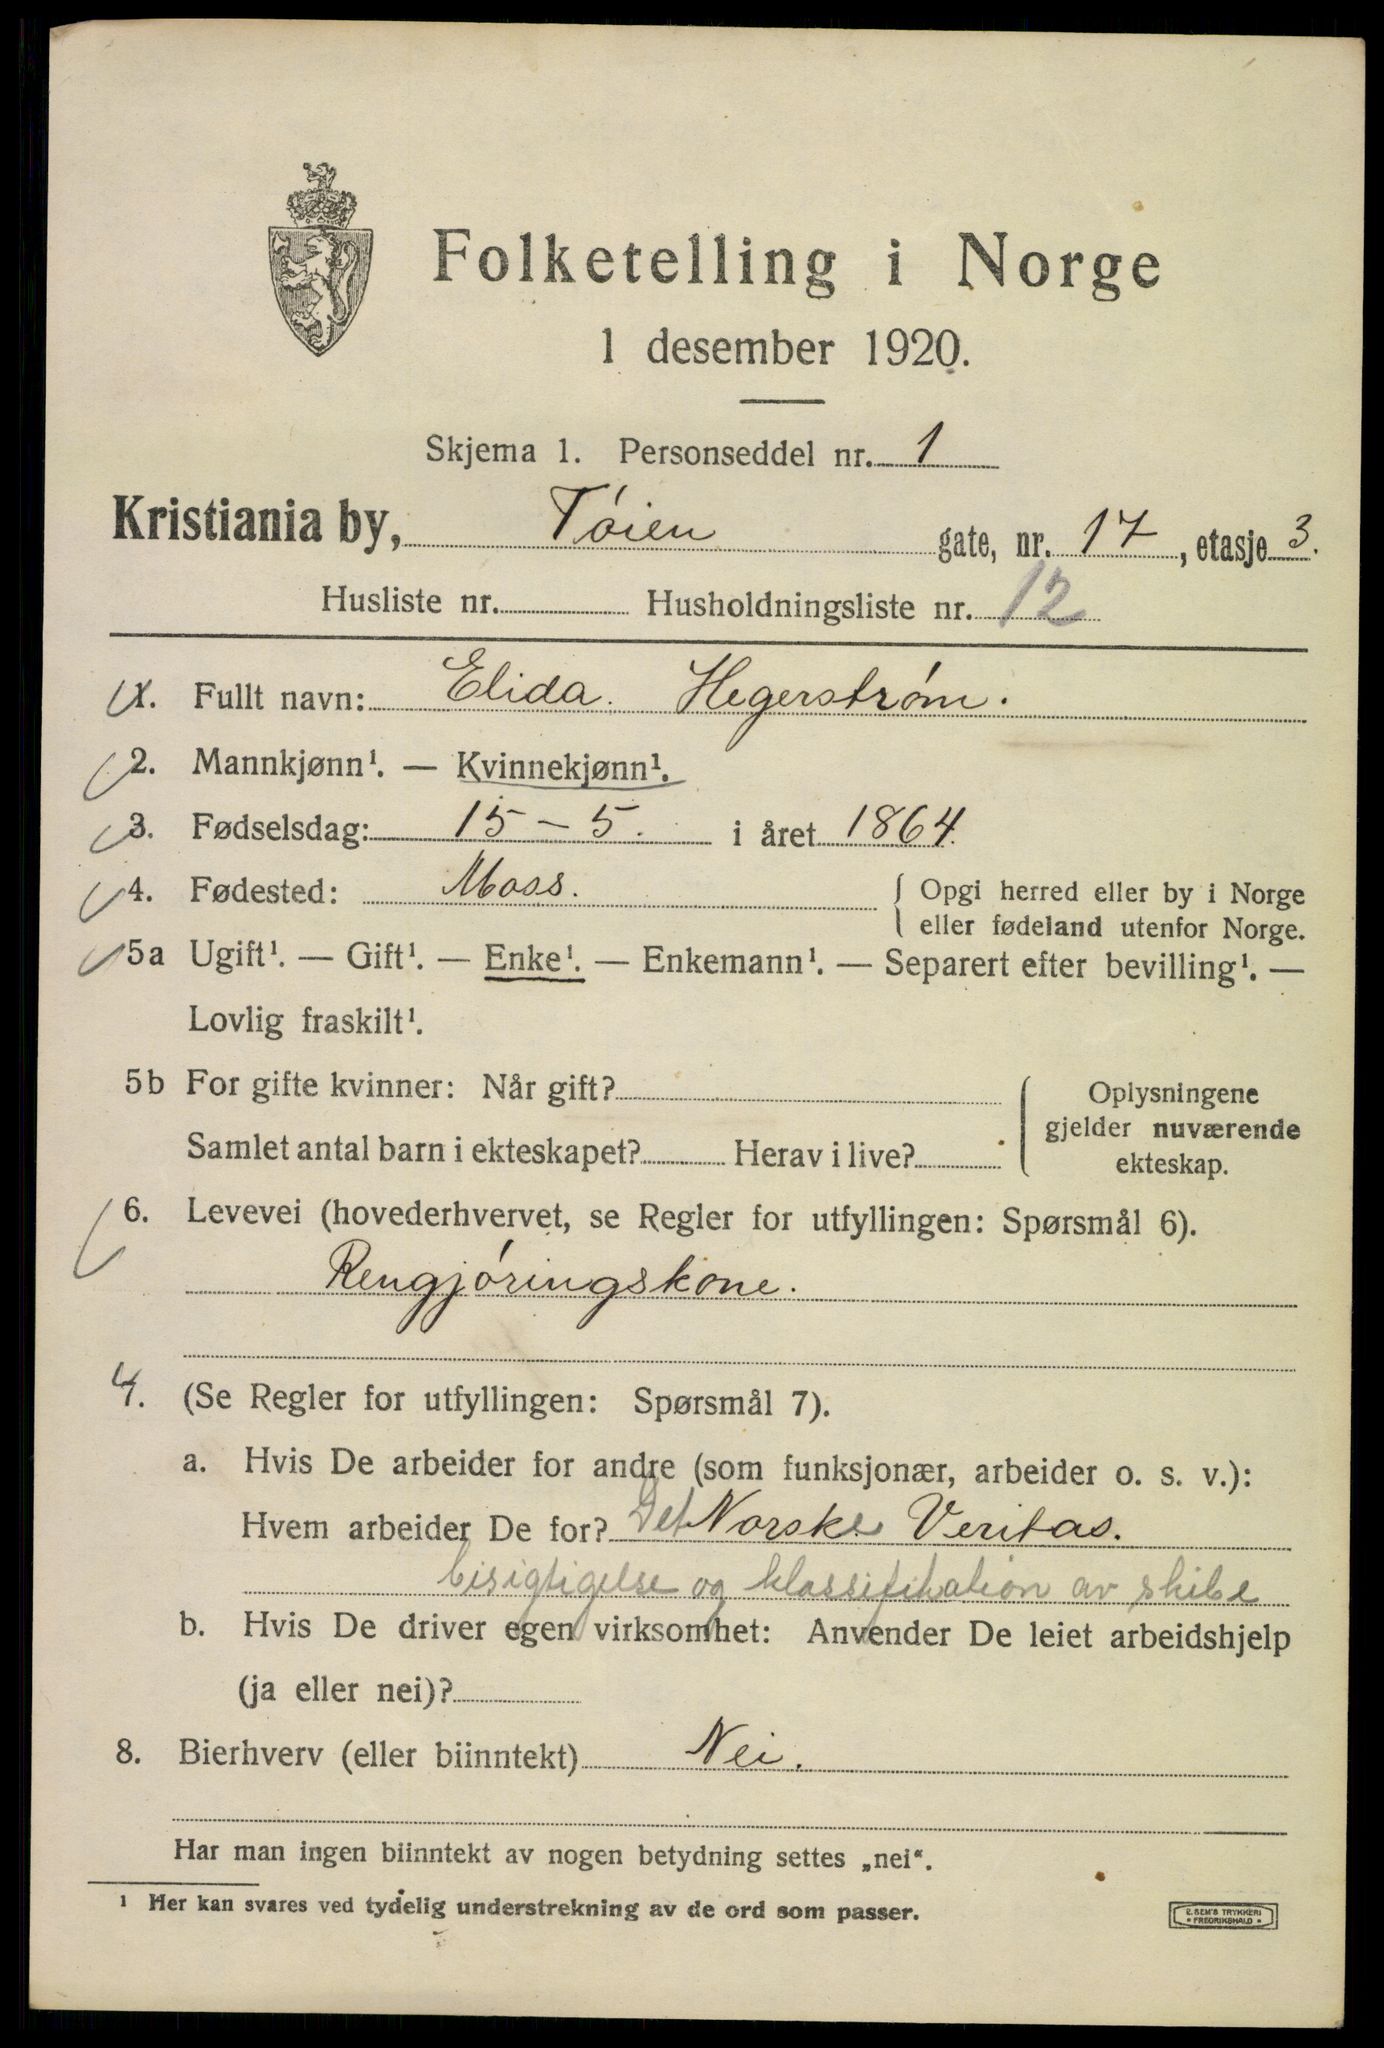 Folketelling i Norge
1 desember 1920.
Skjema 1. Personseddel nr. 1
Kristiania by, Tøien gate, nr. 17, etasje 3.
Husliste nr. Husholdningsliste nr. 12
1. Fullt navn: Elida. Hegerstrøm.
2. Mannkjønn¹. — Kvinnekjønn¹.
3. Fødselsdag: 15 - 5. i året 1864.
4. Fødested: Moss. { Opgi herred eller by i Norge
eller fødeland utenfor Norge.
5a Ugift¹. — Gift¹. — Enke¹. — Enkemann¹. — Separert efter bevilling¹. —
Lovlig fraskilt¹.
5b For gifte kvinner: Når gift?
Samlet antal barn i ekteskapet? Herav i live?
{ Oplysningene
gjelder nuværende
ekteskap.
6. Levevei (hovederhvervet, se Regler for utfyllingen: Spørsmål 6).
Rengjøringskone.
7. (Se Regler for utfyllingen: Spørsmål 7).
a. Hvis De arbeider for andre (som funksjonær, arbeider o. s. v.):
Hvem arbeider De for? Det Norske Veritas.
bisigtigelse og klassifikation av skibe
b. Hvis De driver egen virksomhet: Anvender De leiet arbeidshjelp
(ja eller nei)?
8. Bierhverv (eller biinntekt) Nei.
Har man ingen biinntekt av nogen betydning settes „nei“.
¹ Her kan svares ved tydelig understrekning av de ord som passer.
E. SEM'S TRYKKERI
* FREDRIKSHALD *